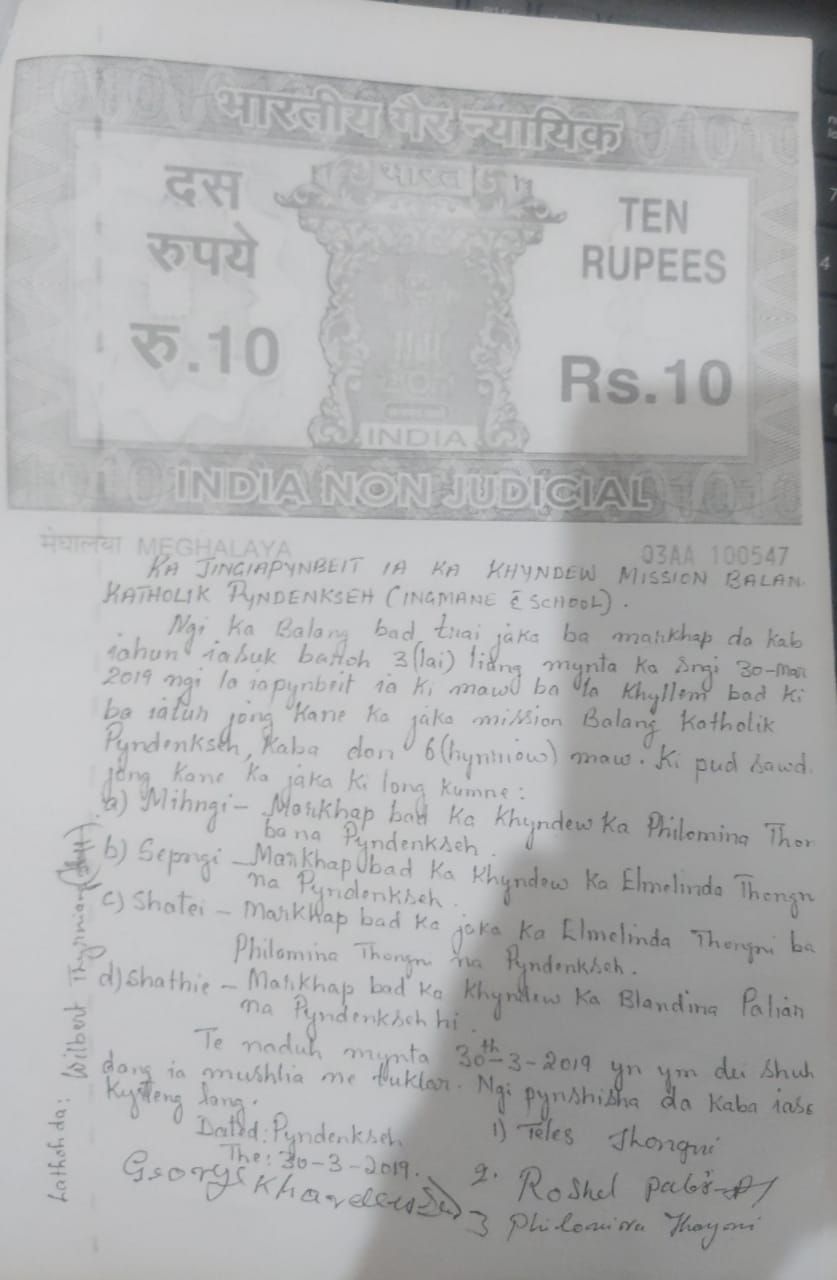 भारतीय गैर न्यायिक
भारत
दस
रुपये
रु.10
TEN
RUPEES
Rs.10
INDIA
INDIA NON JUDICIAL
मेघालया MEGHALAYA
03AA 100547
KA JINGIAPYNBEIT IA KA KHYNDEW MISSION BALAN
KATHOLIK PYNDENKSEH (INGMANE & SCHOOL).
Ngi ka Balang bad trai jaka ba markhap da kab
iahun iabuk batoh 3 (lai) liang mynta ka sngi 30-Mar
2019 ngi la iapynbeit ia ki maw ba la khyllem bad ki
ba iatuh jong kane ka jaka mission Balang Katholik
Pyndenkseh, kaba don 6 (hynriow) maw. Ki pud sawd
jong kane ka jaka ki long kumne:
a) Mihngi - Markhap bad ka khyndew ka Philomina Thon
ba na Pyndenkseh.
b) Sepngi - Markhap bad ka khyndew ka Elmelinda Thongn
na Pyndenkseh.
c) Shatei - Markhap bad ka jaka ka Elmelinda Thongni ba
Philomina Thongni na Pyndenkseh.
d) Shathie - Markhap bad ka khyndew ka Blandina Palian
na Pyndenkseh hi.
Te naduh mynta 30th-3-2019 yn ym dei shuh
dang ia mushlia ne tuklar. Ngi pynshisha da kaba iase
kyrteng lang.
Dated: Pyndenkseh
The: 30-3-2019.
1) Teles Thongni
2. Roshel
3 Philomina Thongni
George Khardewsaw
Lathoh da: Wilbert Thyrniang